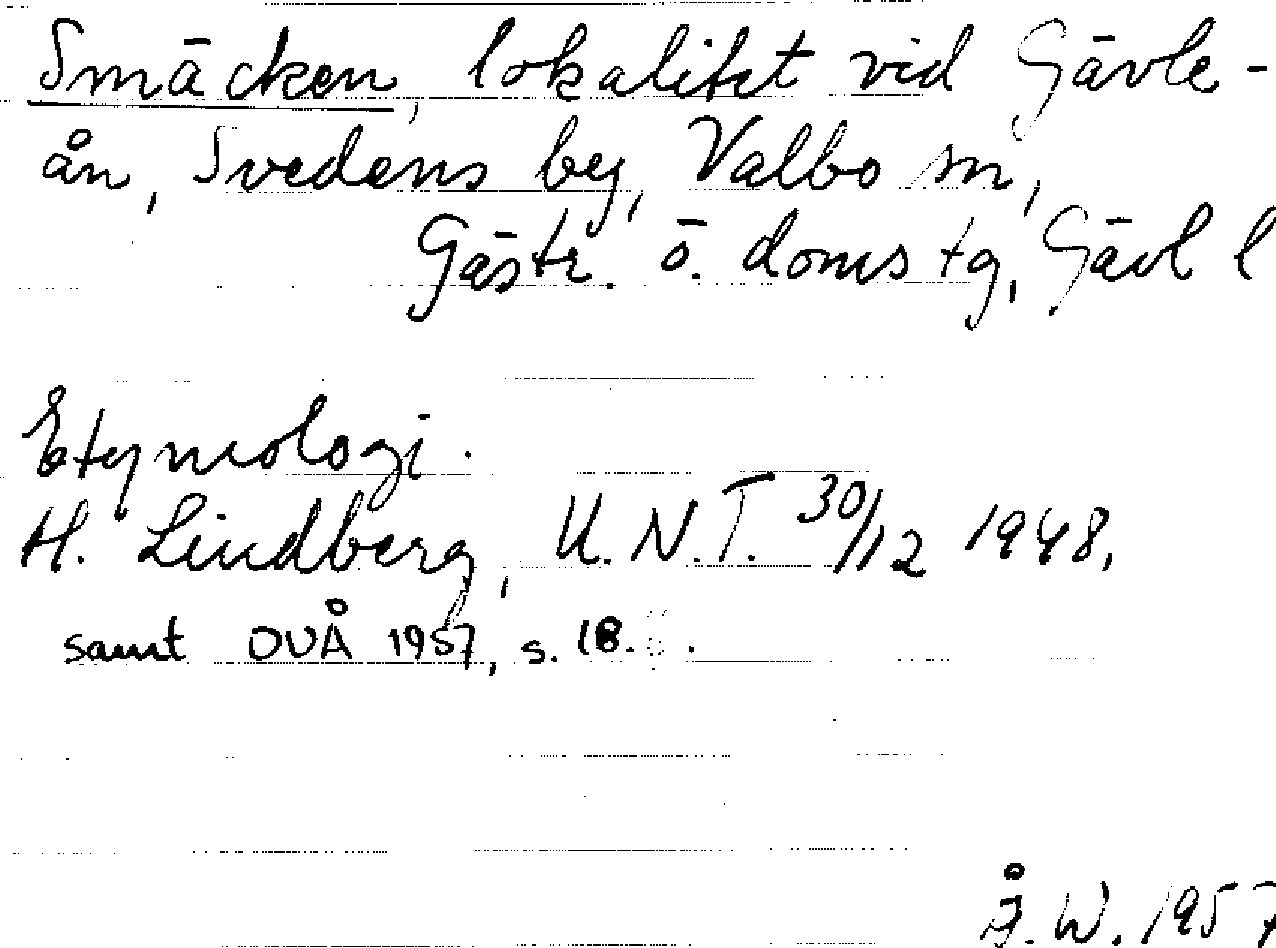 Smäcken, lokalitet vid Gävle-
ån, Svedens by, Valbo sn,
Gästr. ö. doms tg, Gävl l
Etymologi.
H. Lindberg, U.N.T. 30/12 1948,
samt OUÅ 1957, s. 18.
Å. W. 1957